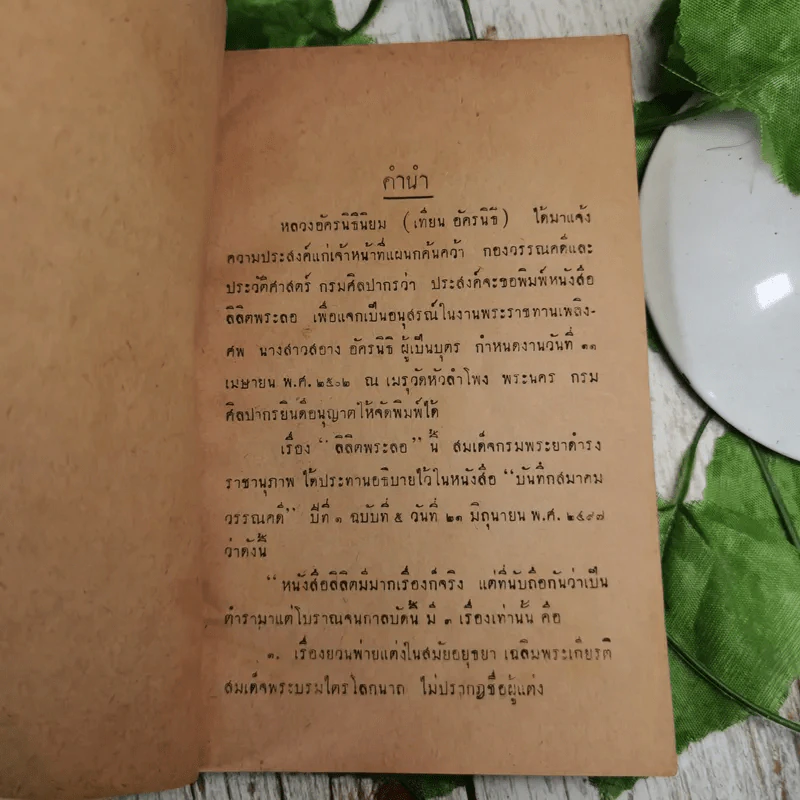 คำนำ
หลวงอัครนิธินิยม (เทียน อัครนิธิ) ได้มาแจ้ง
ความประสงค์แก่เจ้าหน้าที่แผนกค้นคว้า กองวรรณคดีและ
ประวัติศาสตร์ กรมศิลปากรว่า ประสงค์จะขอพิมพ์หนังสือ
ลิลิตพระลอ เพื่อแจกเป็นอนุสรณ์ในงานพระราชทานเพลิง-
ศพ นางสาวสอาง อัครนิธิ ผู้เป็นบุตร กำหนดงานวันที่ ๑๑
เมษายน พ.ศ. ๒๕๐๒ ณ เมรุวัดหัวลำโพง พระนคร กรม
ศิลปากรยินดีอนุญาตให้จัดพิมพ์ได้
เรื่อง “ลิลิตพระลอ” นี้ สมเด็จกรมพระยาดำรง
ราชานุภาพ ได้ประทานอธิบายไว้ในหนังสือ “บันทึกสมาคม
วรรณคดี” ปีที่ ๑ ฉบับที่ ๕ วันที่ ๒๑ มิถุนายน พ.ศ. ๒๔๗๕
ว่าดังนี้
“หนังสือลิลิตมีมากเรื่องก็จริง แต่ที่นับถือกันว่าเป็น
ตำรามาแต่โบราณจนกาลบัดนี้ มี ๓ เรื่องเท่านั้น คือ
๑. เรื่องยวนพ่ายแต่งในสมัยอยุธยา เฉลิมพระเกียรติ
สมเด็จพระบรมไตรโลกนาถ ไม่ปรากฏชื่อผู้แต่ง